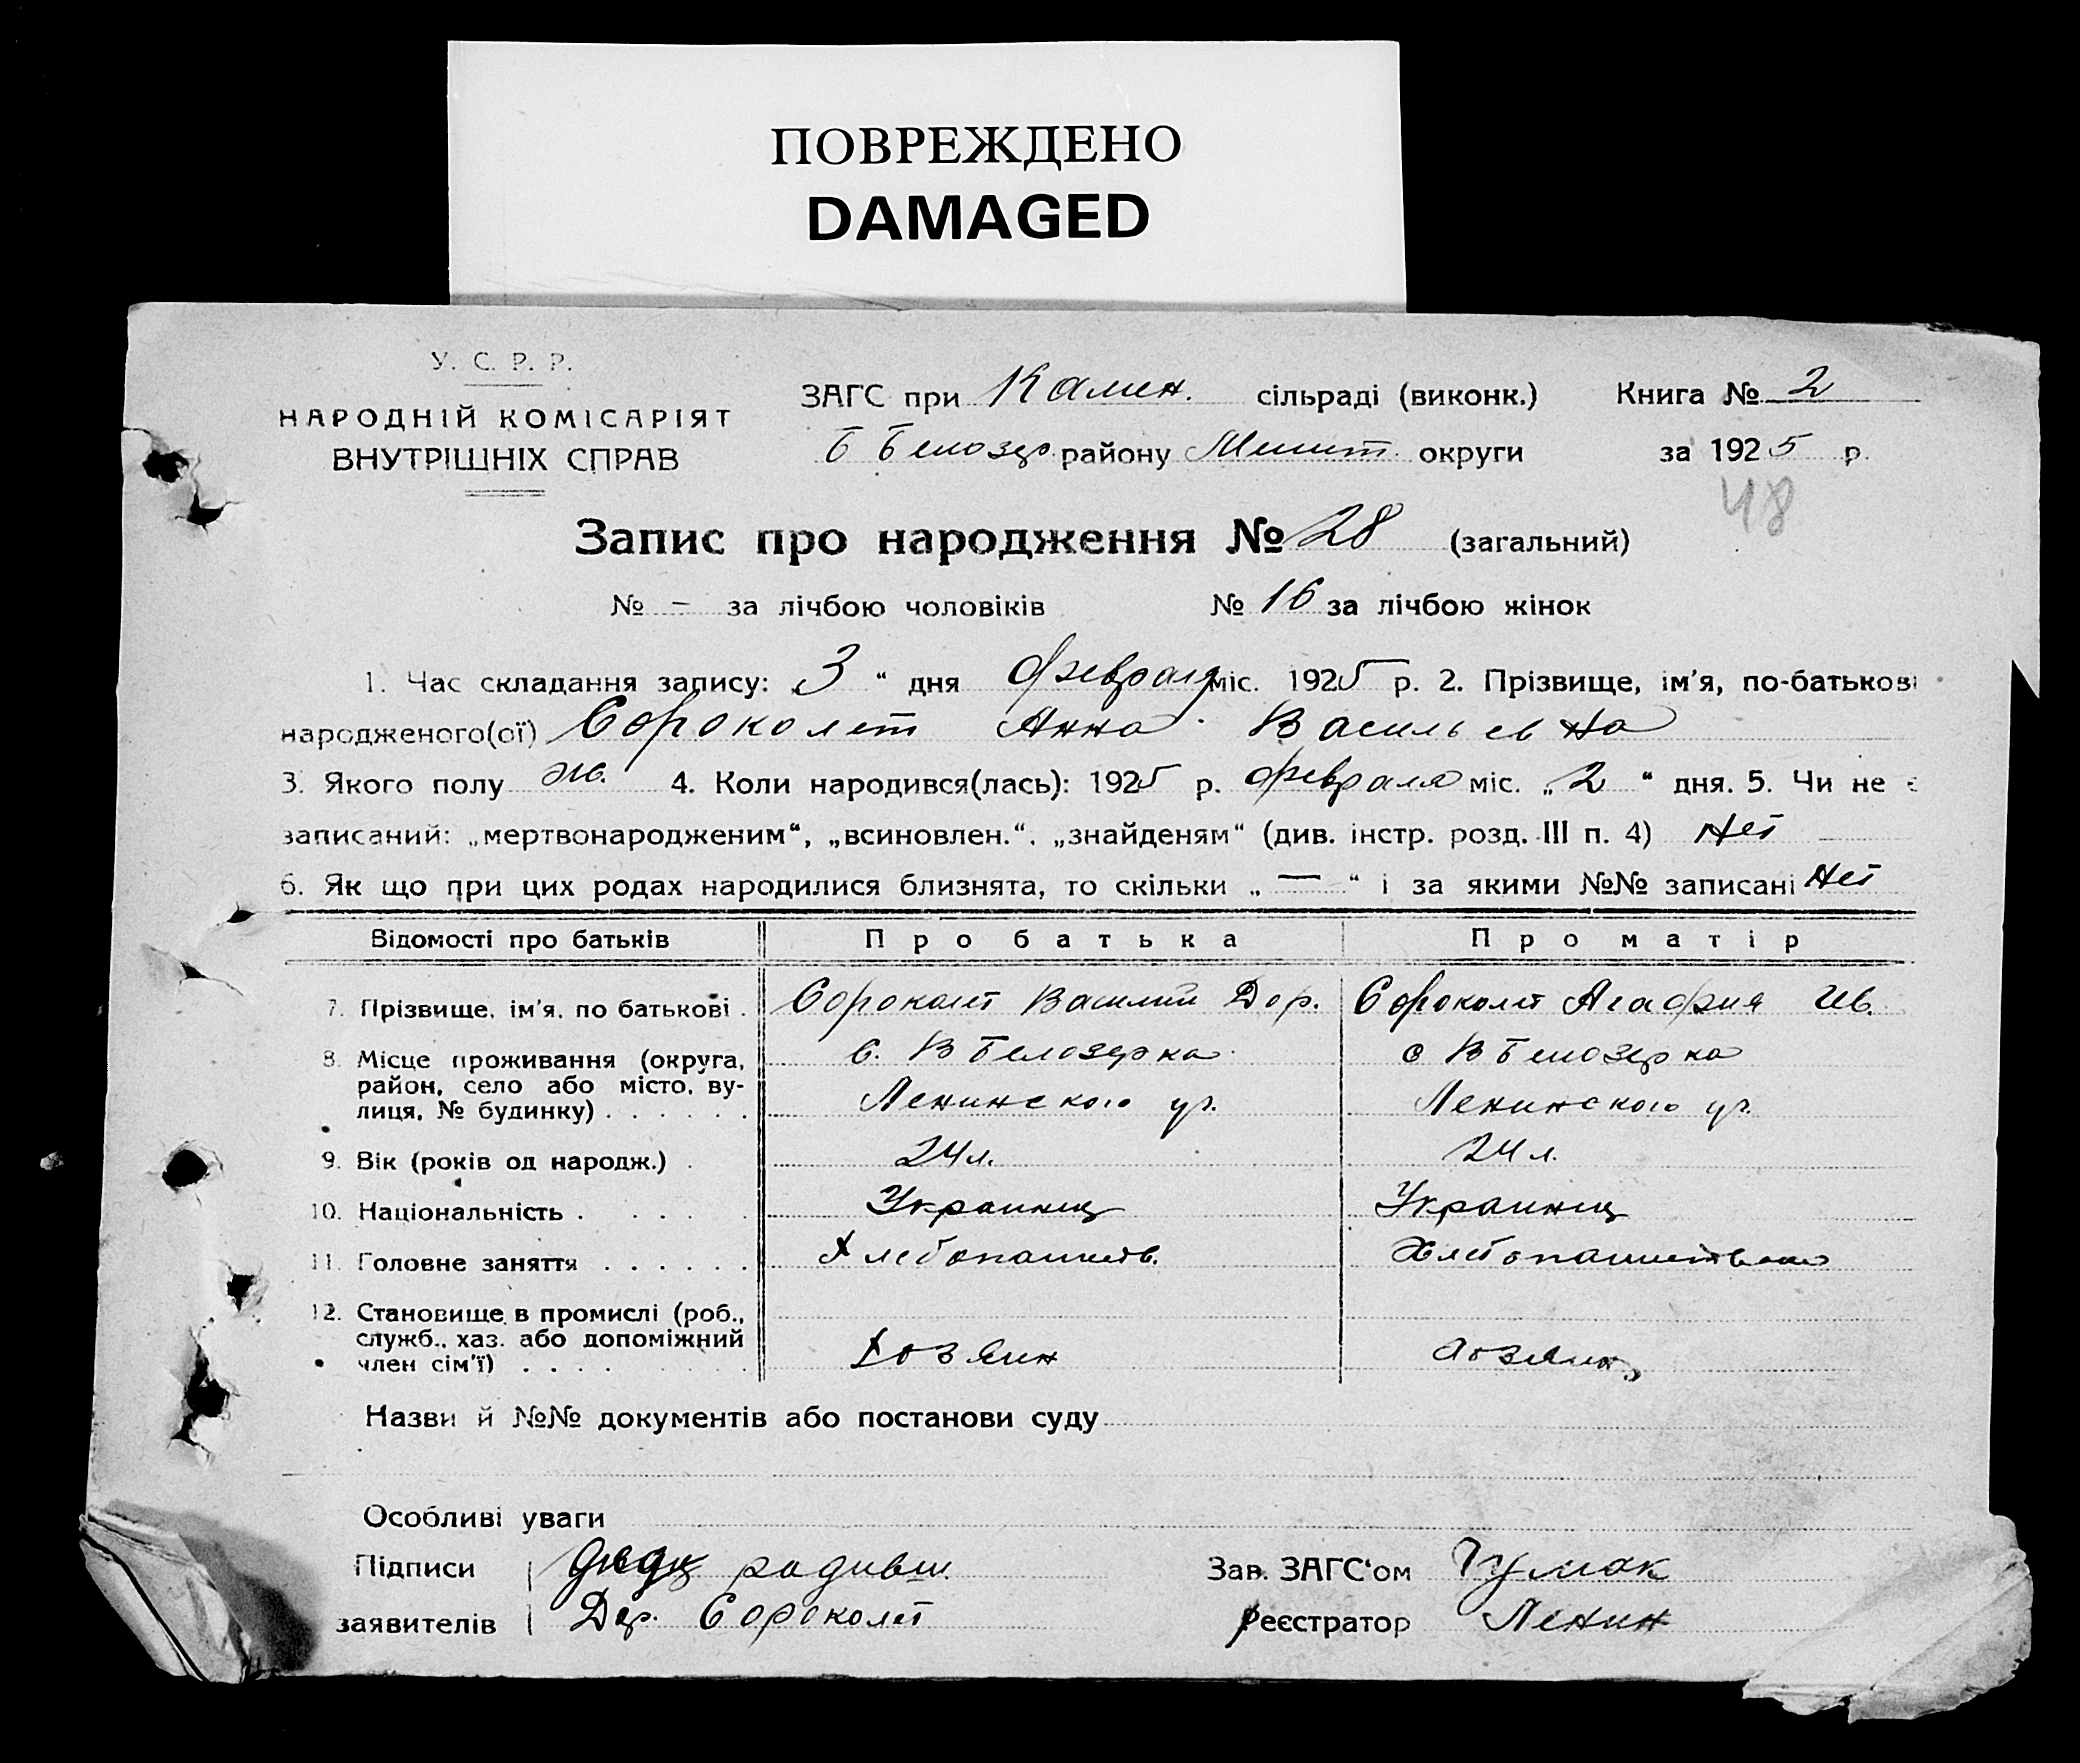 ПОВРЕЖДЕНО
DAMAGED
У. С. Р. Р.
НАРОДНІЙ КОМІСАРІЯТ
ВНУТРІШНІХ СПРАВ
ЗАГС при Камен. сільраді (виконк.) Книга № 2
Б Белозер. району Мелит. округи за 1925 р.
48
Запис про народження № 28 (загальний)
№ – за лічбою чоловіків № 16 за лічбою жінок
1. Час складання запису: „3“ дня февраля міс. 1925 р. 2. Прізвище, ім'я, по-батькові
народженого(ої) Сороколет Анна Васильевна
3. Якого полу ж. 4. Коли народився(лась): 1925 р. февраля міс. „2“ дня. 5. Чи не є
записаний: „мертвонародженим“, „всиновлен.“, „знайденям“ (див. інстр. розд. III п. 4) Нет
6. Як що при цих родах народилися близнята, то скільки „—“ і за якими №№ записані Нет
Відомості про батьків Про батька Про матір
7. Прізвище, ім'я, по батькові . Сороколет Василий Дор. Сороколет Агафия Ив.
8. Місце проживання (округа, с. В Белозерка с В Белозерка
район, село або місто, ву-
лиця, № будинку) . . . . . . Ленинского уч. Ленинского уч.
9. Вік (років од народж.) . 24 л. 24 л.
10. Національність . . . . . Украинц Украинц
11. Головне заняття . . . . . . Хлебопашств. Хлебопашеством
12. Становище в промислі (роб.,
служб., хаз. або допоміжний
член сім'ї) . . . . Хозяин Хозяин
Назви й №№ документів або постанови суду
Особливі уваги
Підписи родивш. Зав. ЗАГС'ом Чумак
заявителів Дор. Сороколет Реєстратор Ленин